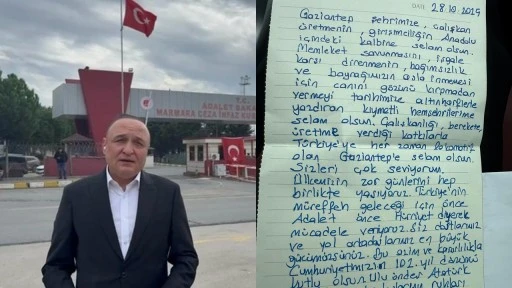 T.C.
ADALET BAKA
MARMARA CEZA İNFAZ KURU
28.10.2025
Gaziantep şehrimize, çalışkan
üretmenin, girişimciliğin Anadolu
içindeki kalbine selam olsun.
Memleket savunmasını, işgale
karşı direnmenin, bağımsızlık
ve bayrağımızın asla inmemesi
için canını gözünü kırpmadan
vermeyi tarihimize altın harflerle
yazdıran kıymetli hemşehrilerime
selam olsun. Çalışkanlığı, bereketi,
üretme verdiği katkılarla
Türkiye'ye her zaman
olan Gaziantep'e selam olsun.
Sizleri çok seviyorum.
Ülkemizin zor günlerini hep
birlikte yaşıyoruz. Türkiye'nin
müreffeh geleceği için önce
Adalet önce Hürriyet diyerek
mücadele veriyoruz. Siz dostlarımız
ve yol arkadaşlarımız en büyük
gücümüzsünüz. Bu azim ve kararlılıkla
Cumhuriyetimizin 102. yıl dönümü
kutlu olsun. Ulu önder Atatürk
ruhları